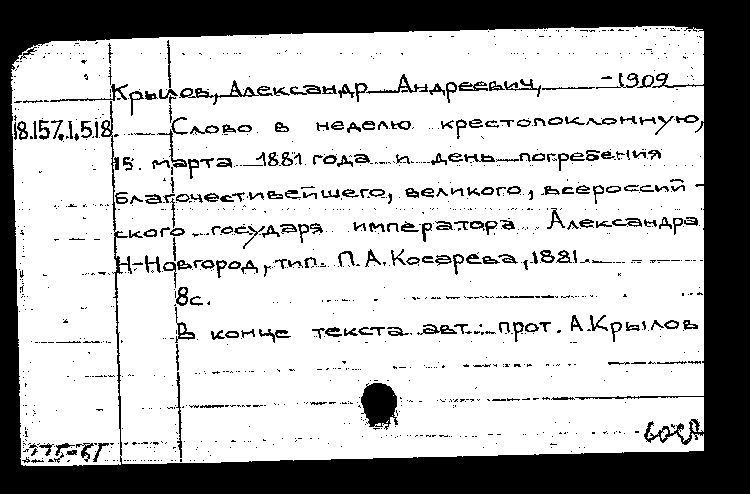 Крылов, Александр Андреевич, -1909
18.157.1.518. Слово в неделю крестопоклонную,
15 марта 1881 года и день погребения
благочестивейшего, великого, всероссий-
ского государя императора Александра
Н-Новгород, тип. П.А.Косарева, 1881.
8с.
В конце текста авт.: прот. А.Крылов